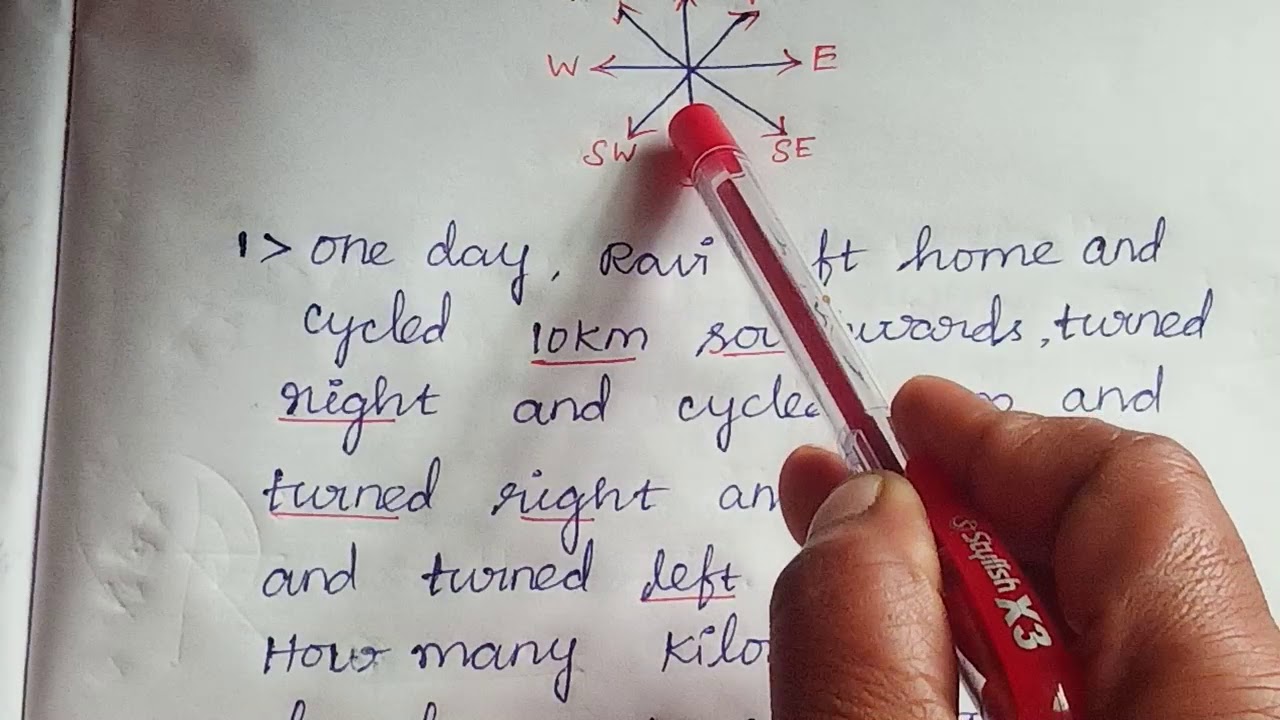 W E
SW SE
1> one day, Ravi ft home and
cycled 10km sou wards, turned
right and cycle and
turned right an
and turned left
How many Kilo
Stylish X3